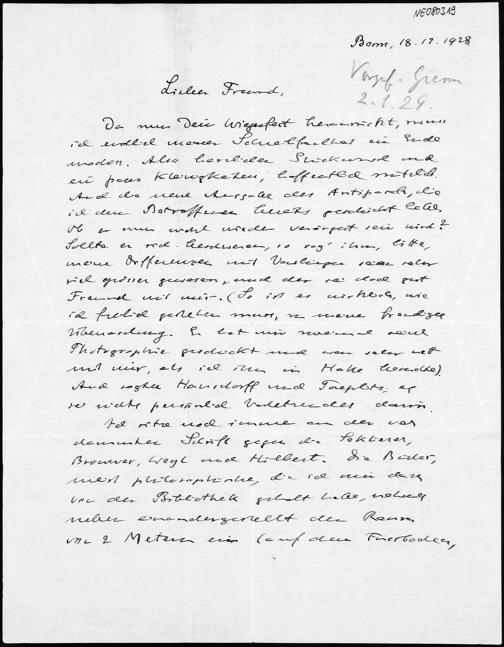 NE080319
Bonn, 18.12.1928
2.1.29.
Lieber Freund,
Da nun Dein Wiegenfest heranrückt, muss
ich endlich meiner Schreibfaulheit ein Ende
machen. Also herzlichen Glückwunsch und
ein paar Kleinigkeiten, hoffentlich nützlich.
Auch die neue Ausgabe des Antipasch, die
ich dem Betroffenen bereits geschickt habe.
Ob er nun wohl wieder verärgert sein wird?
Sollte er sich beschweren, so sag' ihm, bitte,
meine Differenzen mit Vaihinger seien sehr
viel grösser gewesen, und der sei doch gut
Freund mit mir. (So ist es wirklich, wie
ich freilich gestehen muss, zu meiner freudigen
Überraschung. Er hat mir zweimal seine
Photographie geschickt und war sehr nett
mit mir, als ich ihn in Halle besuchte).
Auch sagten Hausdorff und Toeplitz, es
sei nichts persönlich Verletzendes darin.
Ich sitze noch immer an der ver-
dammten Schrift gegen die
Brouwer, Weyl und Hilbert. Die Bücher,
meist philosophische, die ich mir dazu
von der Bibliothek geholt habe, nehmen
neben einandergestellt den Raum
von 2 Metern ein (auf dem Fussboden,